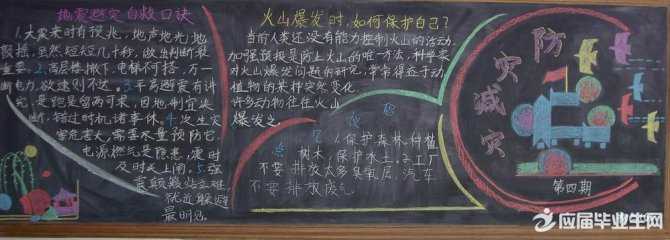 地震避灾自救口诀
1.大震来时有预兆，地声地光地
颤摇，虽然短短几十秒，做出判断最
重要。2.高层楼撤下，电梯不可搭，万一
断电力，欲速则不达。3.平房避震有讲
究，是跑是留两可求，因地制宜决
断，错过时机诸事休。4.次生灾
害危害大，需要尽量预防它，
电源燃气是隐患，震时
及时关上闸。5.强
震颠簸站立难，
就近躲避
最明智。
火山爆发时，如何保护自己？
当前人类还没有能力控制火山的活动，
加强预报是防止火山的唯一方法，科学家
对火山爆发问题的研究，常常得益于动
植物的某种突然变化。
许多动物往往火山
爆发之
1.保护森林，种植
树木，保护水土。2.工厂
不要排放太多臭氧层，汽车
不要排放废气。
防
灾
减
灾
第四期
应届毕业生网